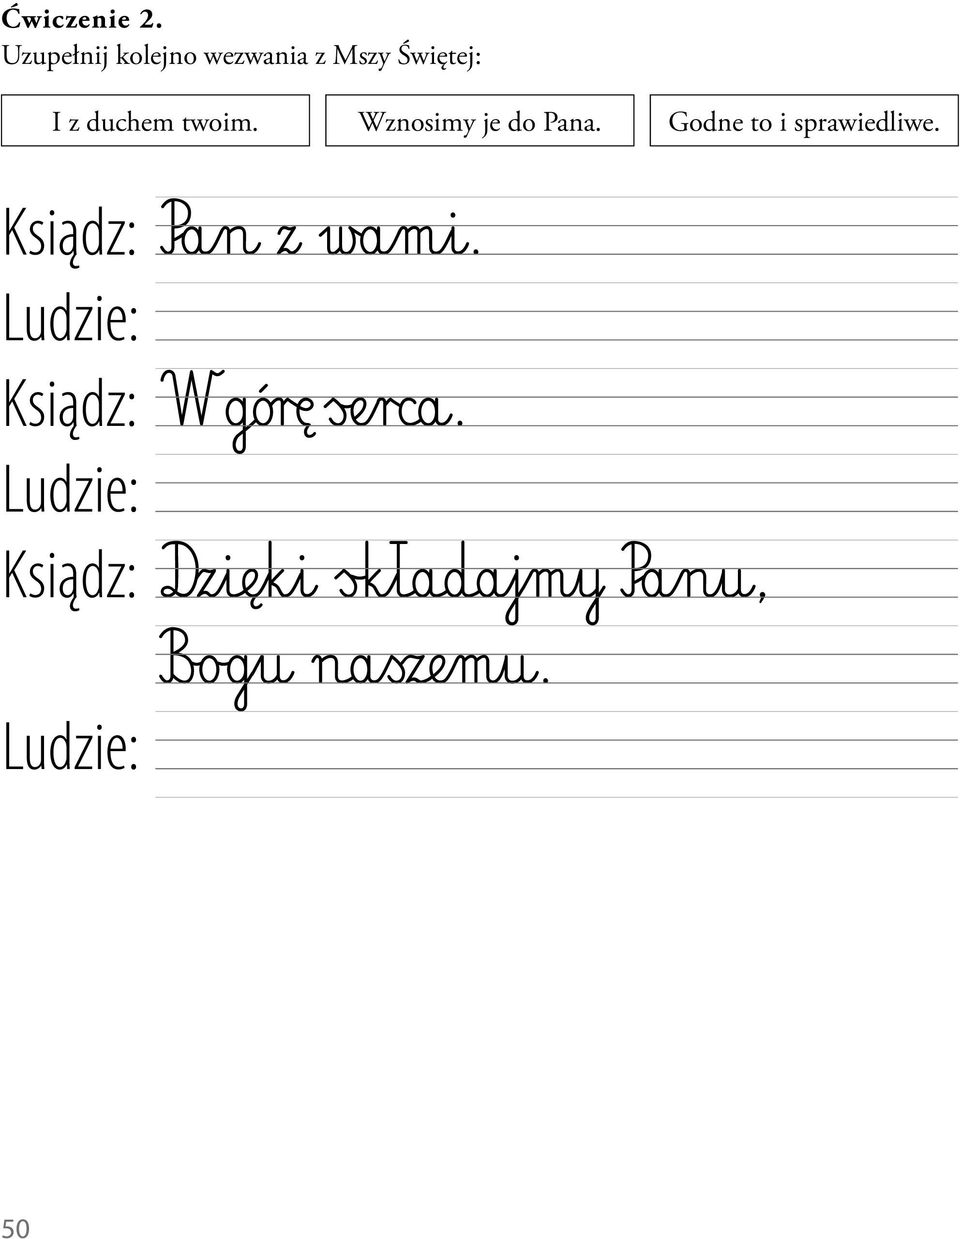 Ćwiczenie 2.
Uzupełnij kolejno wezwania z Mszy Świętej:
I z duchem twoim. Wznosimy je do Pana. Godne to i sprawiedliwe.
Ksiądz: Pan z wami.
Ludzie:
Ksiądz: W górę serca.
Ludzie:
Ksiądz: Dzięki składajmy Panu,
Bogu naszemu.
Ludzie:
50